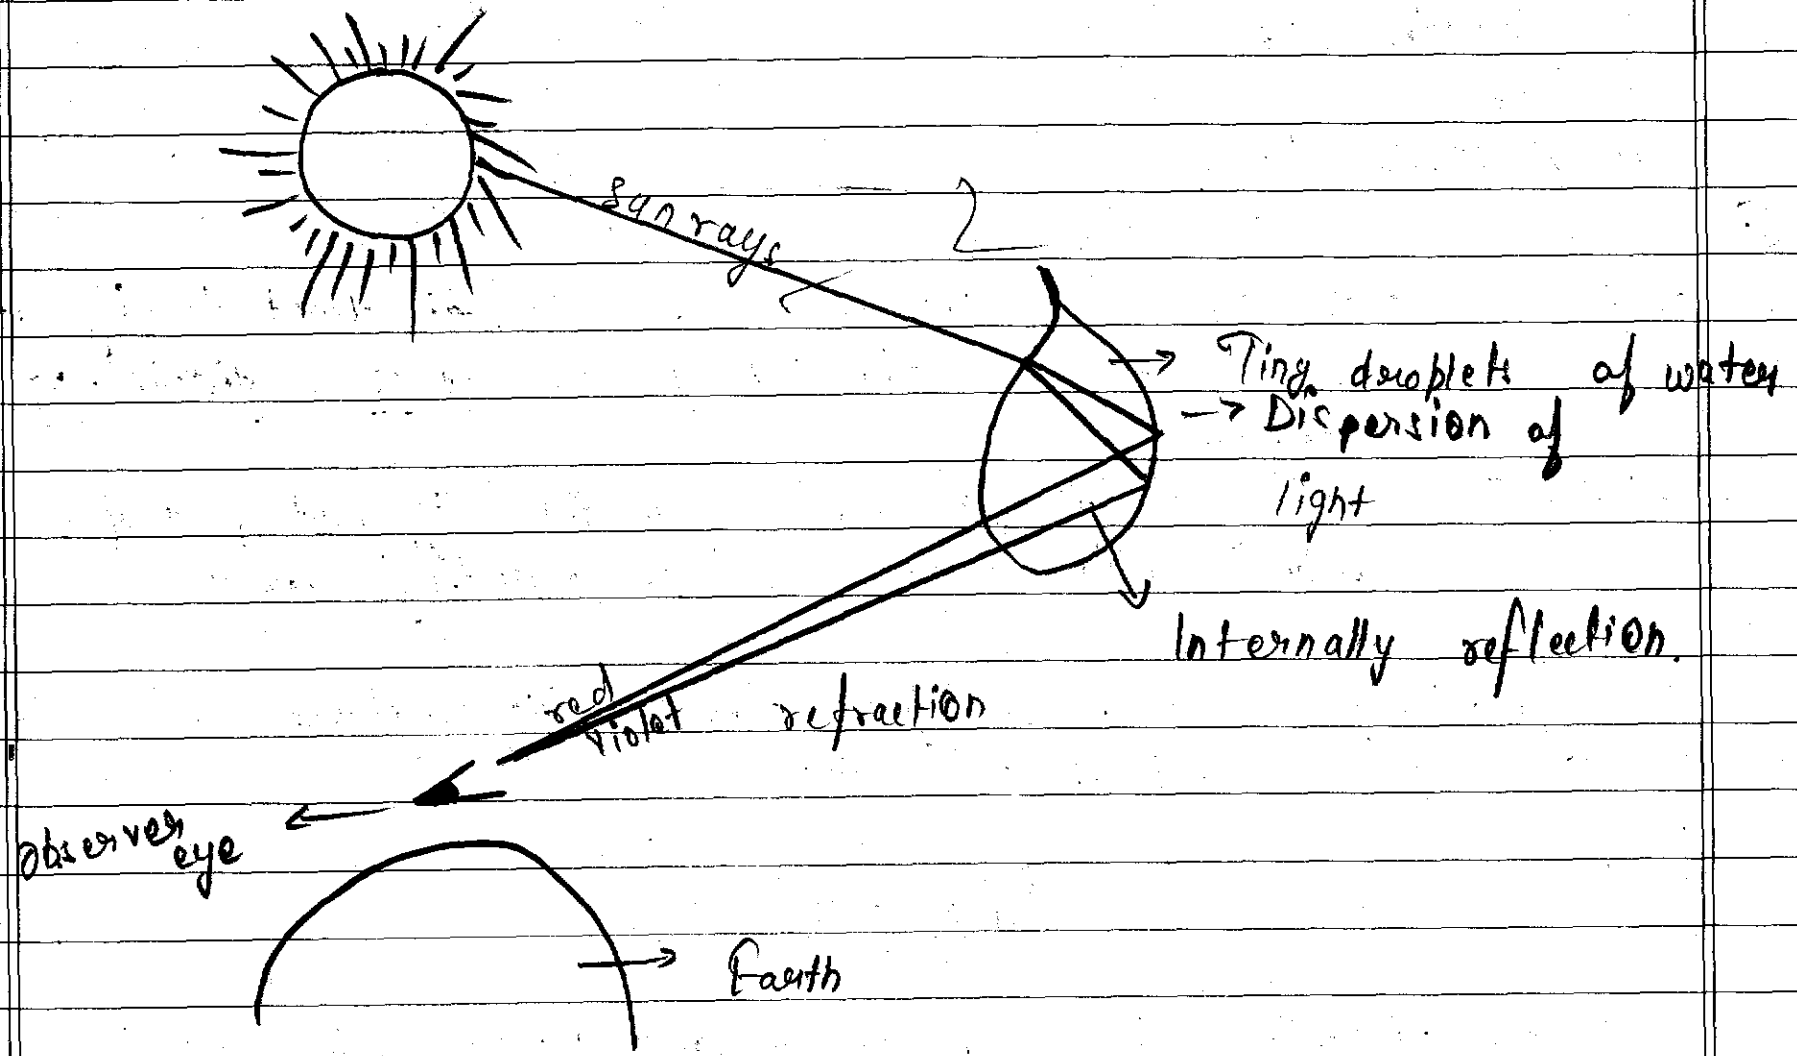 Sun rays
2
Tiny droplets of water
→ Dispersion of
light
Internally reflection.
red
violet
refraction
observer
eye
Earth